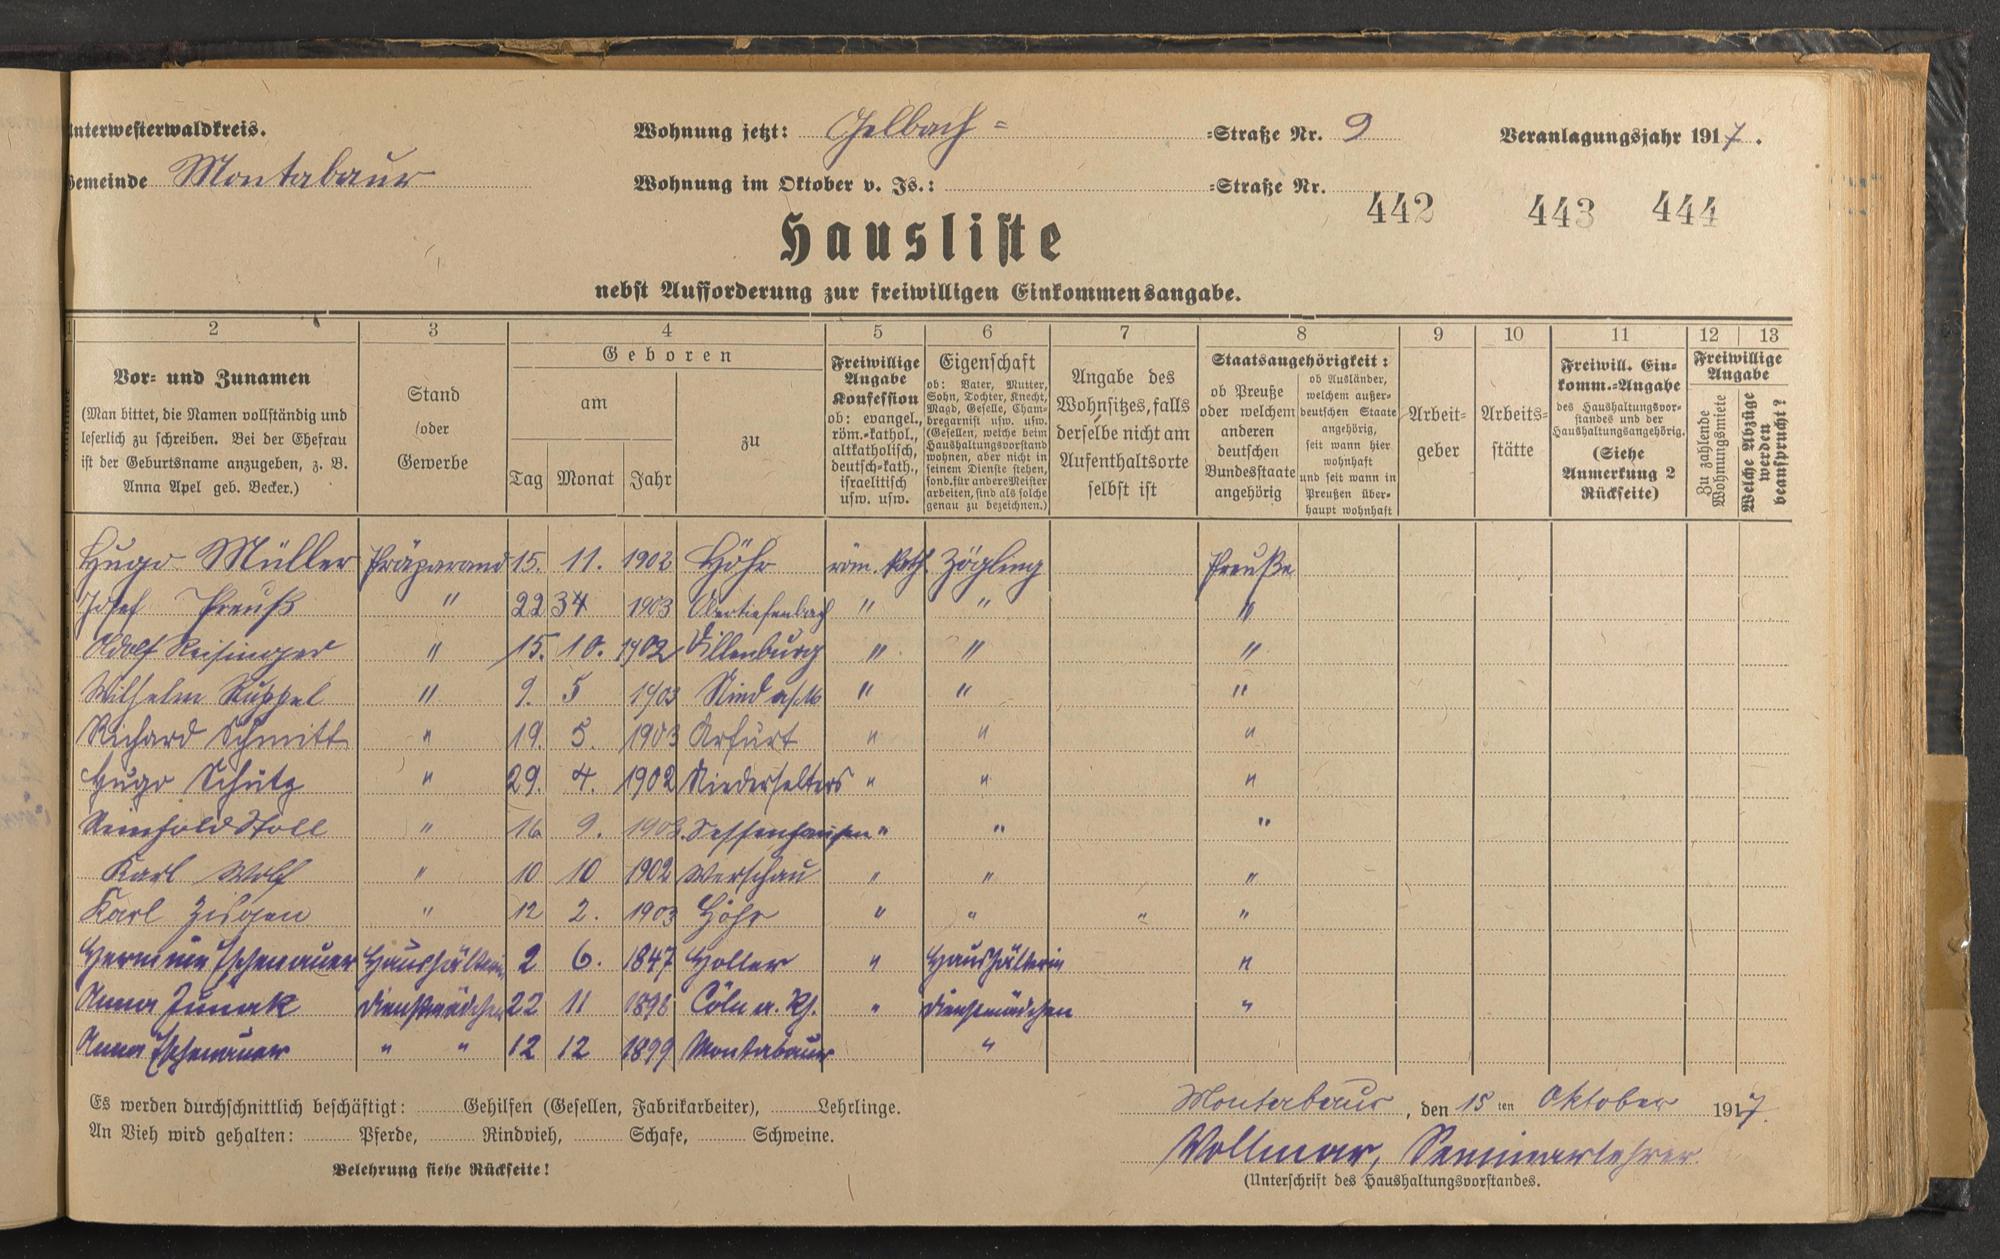 Unterwesterwaldkreis. Wohnung jetzt: Gelbach- -Straße Nr. 9 Veranlagungsjahr 1917.
Gemeinde Montabaur Wohnung im Oktober v. Js.: -Straße Nr.
442 443 444
Hausliste
nebst Aufforderung zur freiwilligen Einkommensangabe.
2 3 4 5 6 7 8 9 10 11 12 13
Vor- und Zunamen
(Man bittet, die Namen vollständig und
leserlich zu schreiben. Bei der Ehefrau
ist der Geburtsname anzugeben, z. B.
Anna Apel geb. Becker.)
Stand
/oder
Gewerbe
Geboren
am
Tag Monat Jahr
zu
Freiwillige
Angabe
Konfession
ob: evangel.,
röm.-kathol.,
altkatholisch,
deutsch-kath.,
israelitisch
usw. usw.
Eigenschaft
ob: Vater, Mutter,
Sohn, Tochter, Knecht,
Magd, Geselle, Cham-
bregarnist usw. usw.
(Gesellen, welche beim
Haushaltungsvorstand
wohnen, aber nicht in
seinem Dienste stehen,
sond. für andere Meister
arbeiten, sind als solche
genau zu bezeichnen.)
Angabe des
Wohnsitzes, falls
derselbe nicht am
Aufenthaltsorte
selbst ist
Staatsangehörigkeit:
ob Preuße
oder welchem
anderen
deutschen
Bundesstaate
angehörig
ob Ausländer,
welchem außer-
deutschen Staate
angehörig,
seit wann hier
wohnhaft
und seit wann in
Preußen über-
haupt wohnhaft
Arbeit-
geber
Arbeits-
stätte
Freiwill. Ein-
komm.-Angabe
des Haushaltungsvor-
standes und der
Haushaltungsangehörig.
(Siehe
Anmerkung 2
Rückseite)
Freiwillige
Angabe
Zu zahlende
Wohnungsmiete
Welche Abzüge
werden
beansprucht?
Hugo Müller Präparand 15. 11. 1902 Höhr röm. kath. Zögling Preuße
Josef Preuß " 22 34 1903 Obertiefenbach " " "
Adolf Reisinger " 15. 10. 1902 Dillenburg " " "
Wilhelm Ruppel " 9. 5 1903 Nied a/M " " "
Richard Schmitt " 19. 5. 1903 Arfurt " " "
Hugo Schütz " 29. 4. 1902 Niederselters " " "
Reinhold Stoll " 16 9. 1903. Sessenhausen " " "
Karl Wolf " 10 10 1902 Werschau " " "
Karl Zilgen " 12 2. 1903 Höhr " " " "
Hermine Eschenauer Haushälterin 2 6. 1847 Holler " Haushälterin "
Anna Dienstmädchen 22 11 1898 Cöln a. Rh. " Dienstmädchen "
Anna Eschenauer " " 12 12 1899 Montabaur "
Es werden durchschnittlich beschäftigt: Gehilfen (Gesellen, Fabrikarbeiter), Lehrlinge.
An Vieh wird gehalten: Pferde, Rindvieh, Schafe, Schweine.
Belehrung siehe Rückseite!
Montabaur, den 15ten Oktober 1917.
Vollmar, Seminarlehrer.
(Unterschrift des Haushaltungsvorstandes.